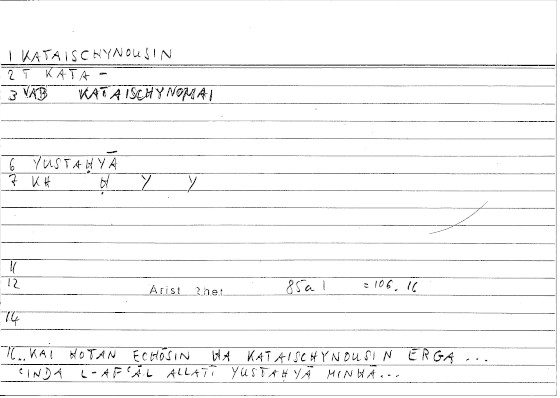 1 KATAISCHYNOUSIN
2 T KATA -
3 VAB KATAISCHYNOMAI
6 YUSTAḤYĀ
7 KH Ḥ Y Y
11
12 Arist Rhet 85a1 = 106.16
14
16.. KAI HOTAN ECHŌSIN HA KATAISCHYNOUSIN ERGA ...
ʿINDA L-AFʿĀL ALLATĪ YUSTAḤYĀ MINHĀ...